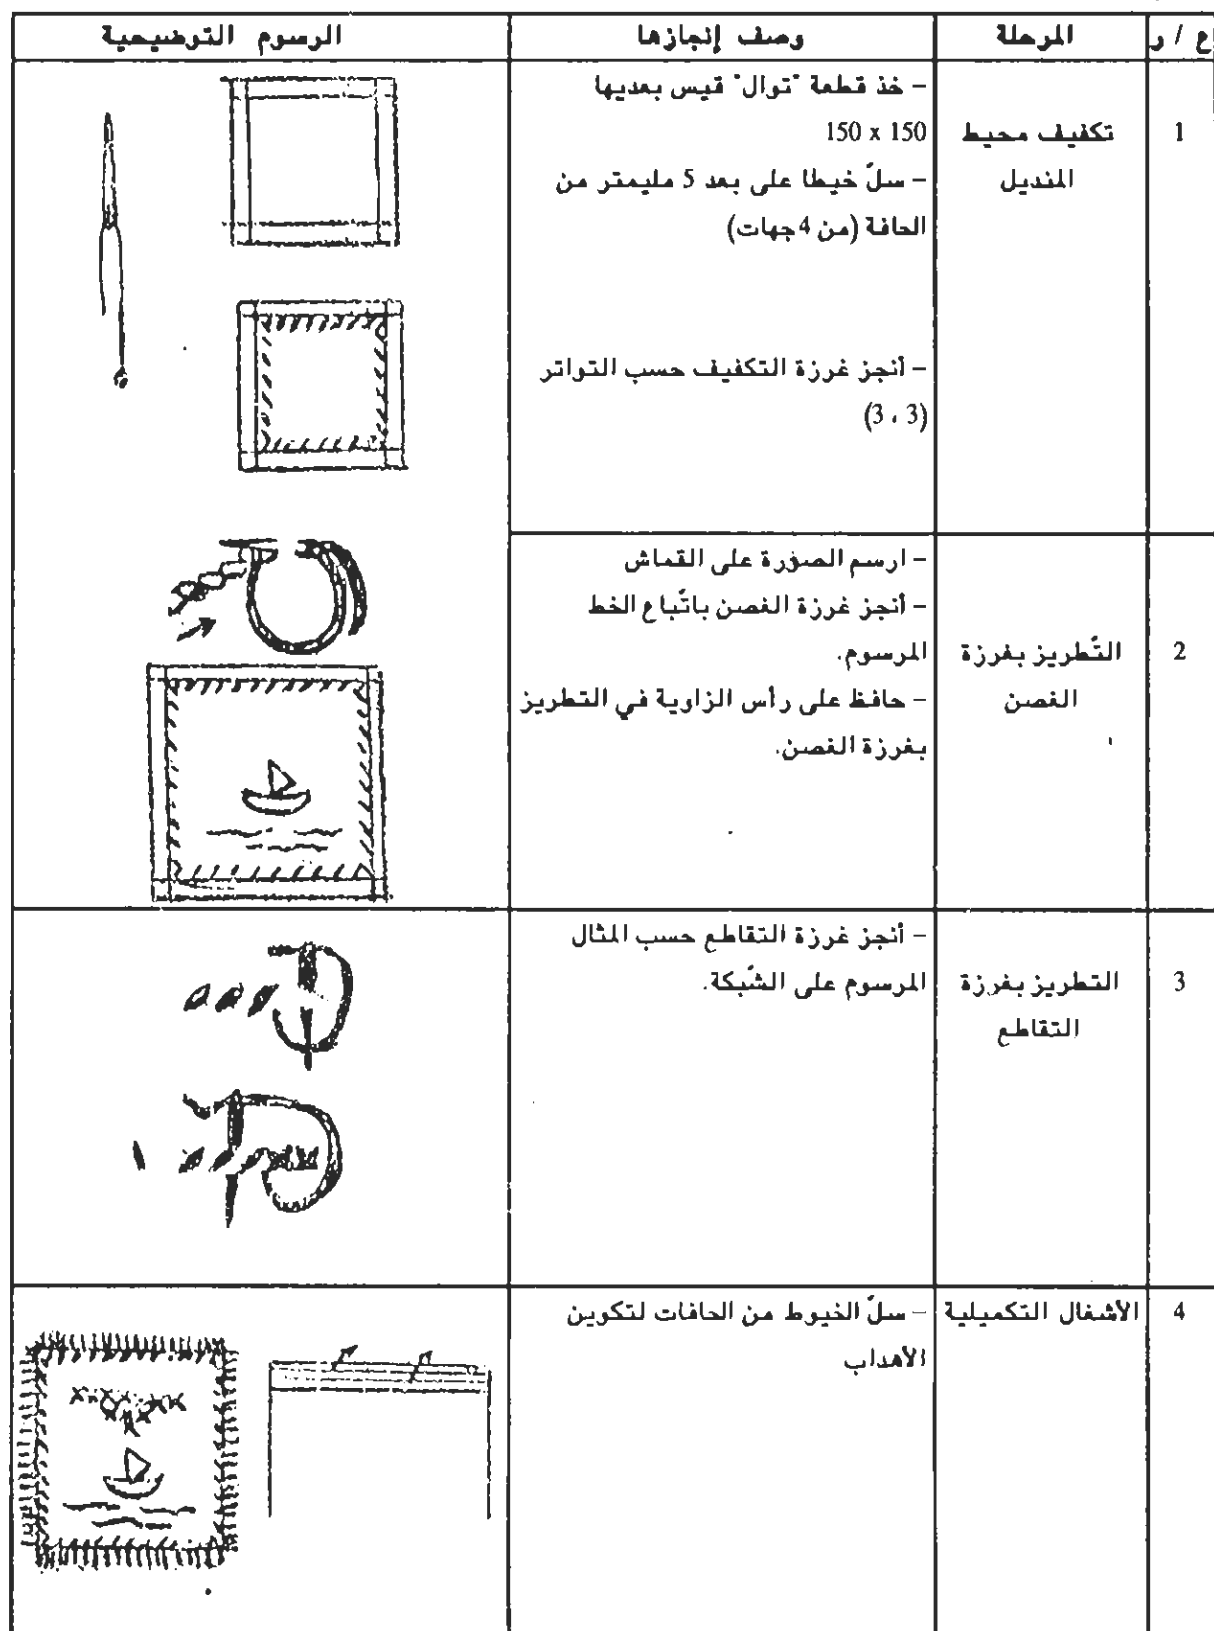 ع / ر
المرحلة
وصف إنجازها
الرسوم التوضيحية
1
تكفيف محيط
المنديل
– خذ قطعة "توال" قيس بعديها
150 x 150
– سلّ خيطا على بعد 5 مليمتر من
الحافة (من 4 جهات)
– أنجز غرزة التكفيف حسب التواتر
(3 ، 3)
2
التّطريز بغرزة
الغصن
– ارسم الصورة على القماش
– أنجز غرزة الغصن باتّباع الخط
المرسوم.
– حافظ على رأس الزاوية في التطريز
بغرزة الغصن.
3
التطريز بغرزة
التقاطع
– أنجز غرزة التقاطع حسب المثال
المرسوم على الشّبكة.
4
الأشغال التكميلية
– سلّ الخيوط من الحافات لتكوين
الأهداب